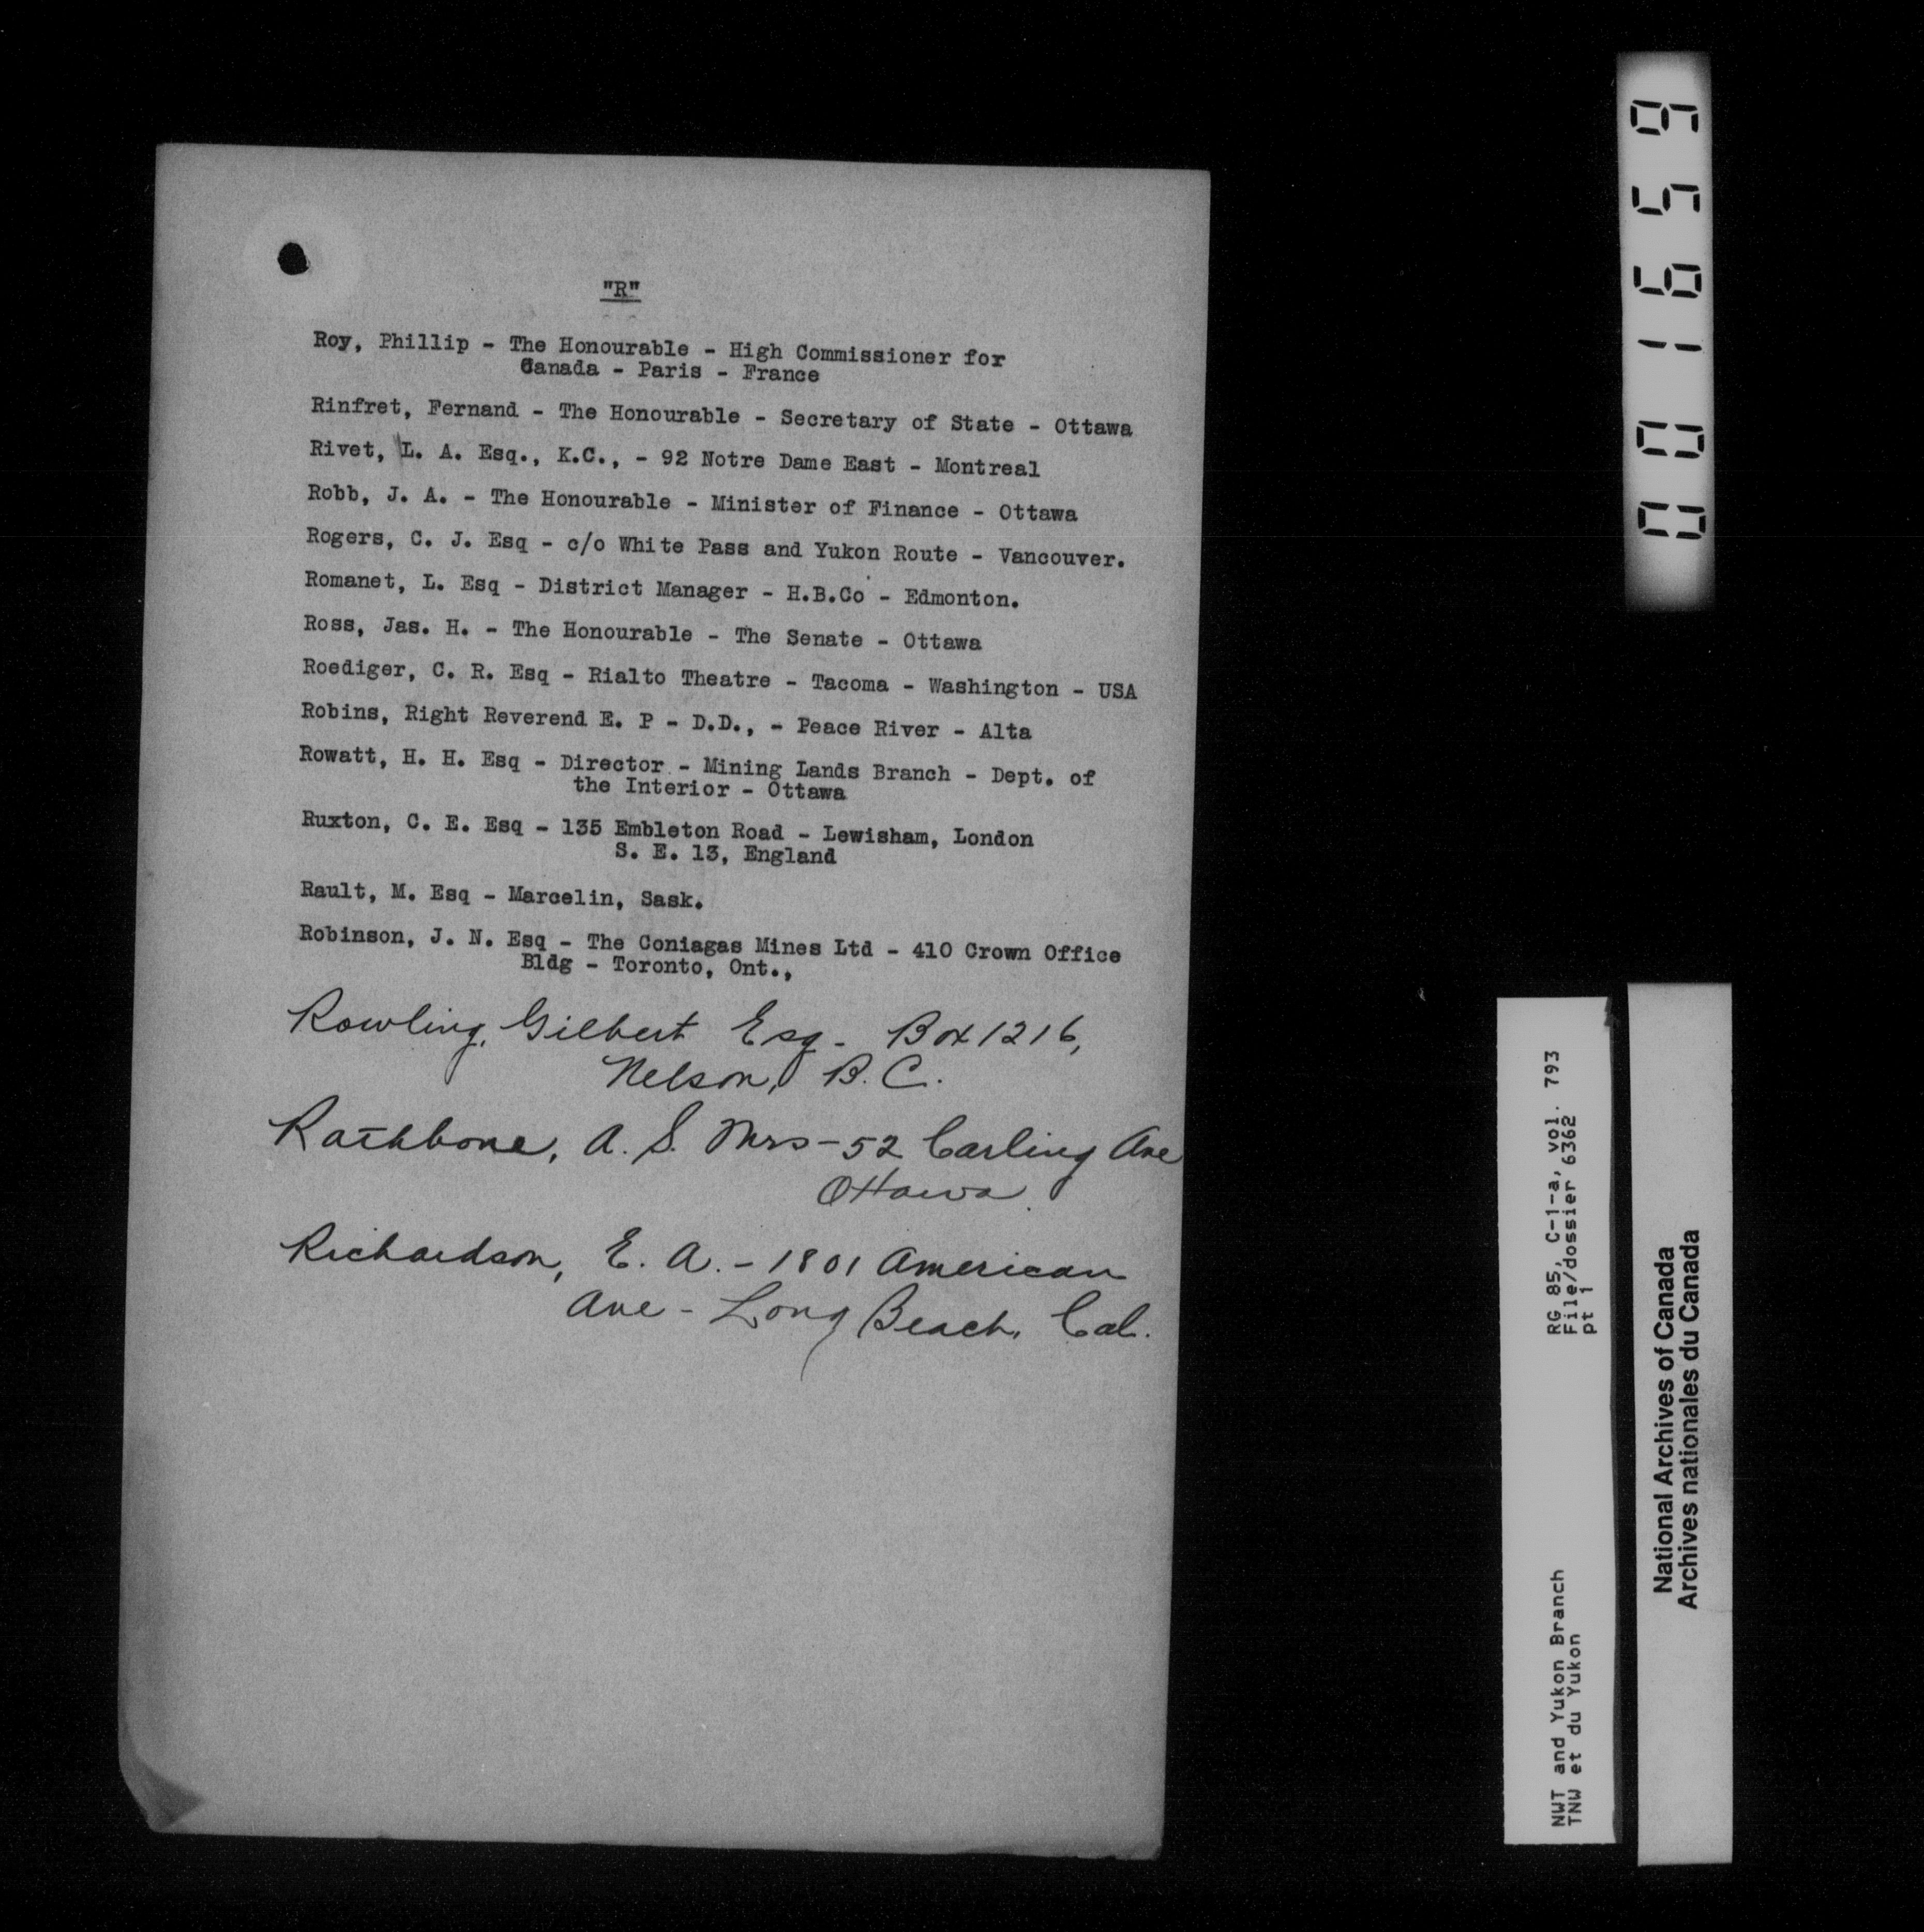 "R"
Roy, Phillip - The Honourable - High Commissioner for
Canada - Paris - France
Rinfret, Fernand - The Honourable - Secretary of State - Ottawa
Rivet, L. A. Esq., K.C., - 92 Notre Dame East - Montreal
Robb, J. A. - The Honourable - Minister of Finance - Ottawa
Rogers, C. J. Esq - c/o White Pass and Yukon Route - Vancouver.
Romanet, L. Esq - District Manager - H.B.Co - Edmonton.
Ross, Jas. H. - The Honourable - The Senate - Ottawa
Roediger, C. R. Esq - Rialto Theatre - Tacoma - Washington - USA
Robins, Right Reverend E. P - D.D., - Peace River - Alta
Rowatt, H. H. Esq - Director - Mining Lands Branch - Dept. of
the Interior - Ottawa
Ruxton, C. E. Esq - 135 Embleton Road - Lewisham, London
S. E. 13, England
Rault, M. Esq - Marcelin, Sask.
Robinson, J. N. Esq - The Coniagas Mines Ltd - 410 Crown Office
Bldg - Toronto, Ont.,
Rowling, Gilbert Esq - Box 1216,
Nelson, B.C.
Rathbone, A. S. Mrs - 52 Carling Ave
Ottawa.
Richardson, E. A. - 1801 American
Ave - Long Beach, Cal.
001659
RG 85, C-1-a, vol. 793
File/dossier 6362
pt 1
NWT and Yukon Branch
TNW et du Yukon
National Archives of Canada
Archives nationales du Canada